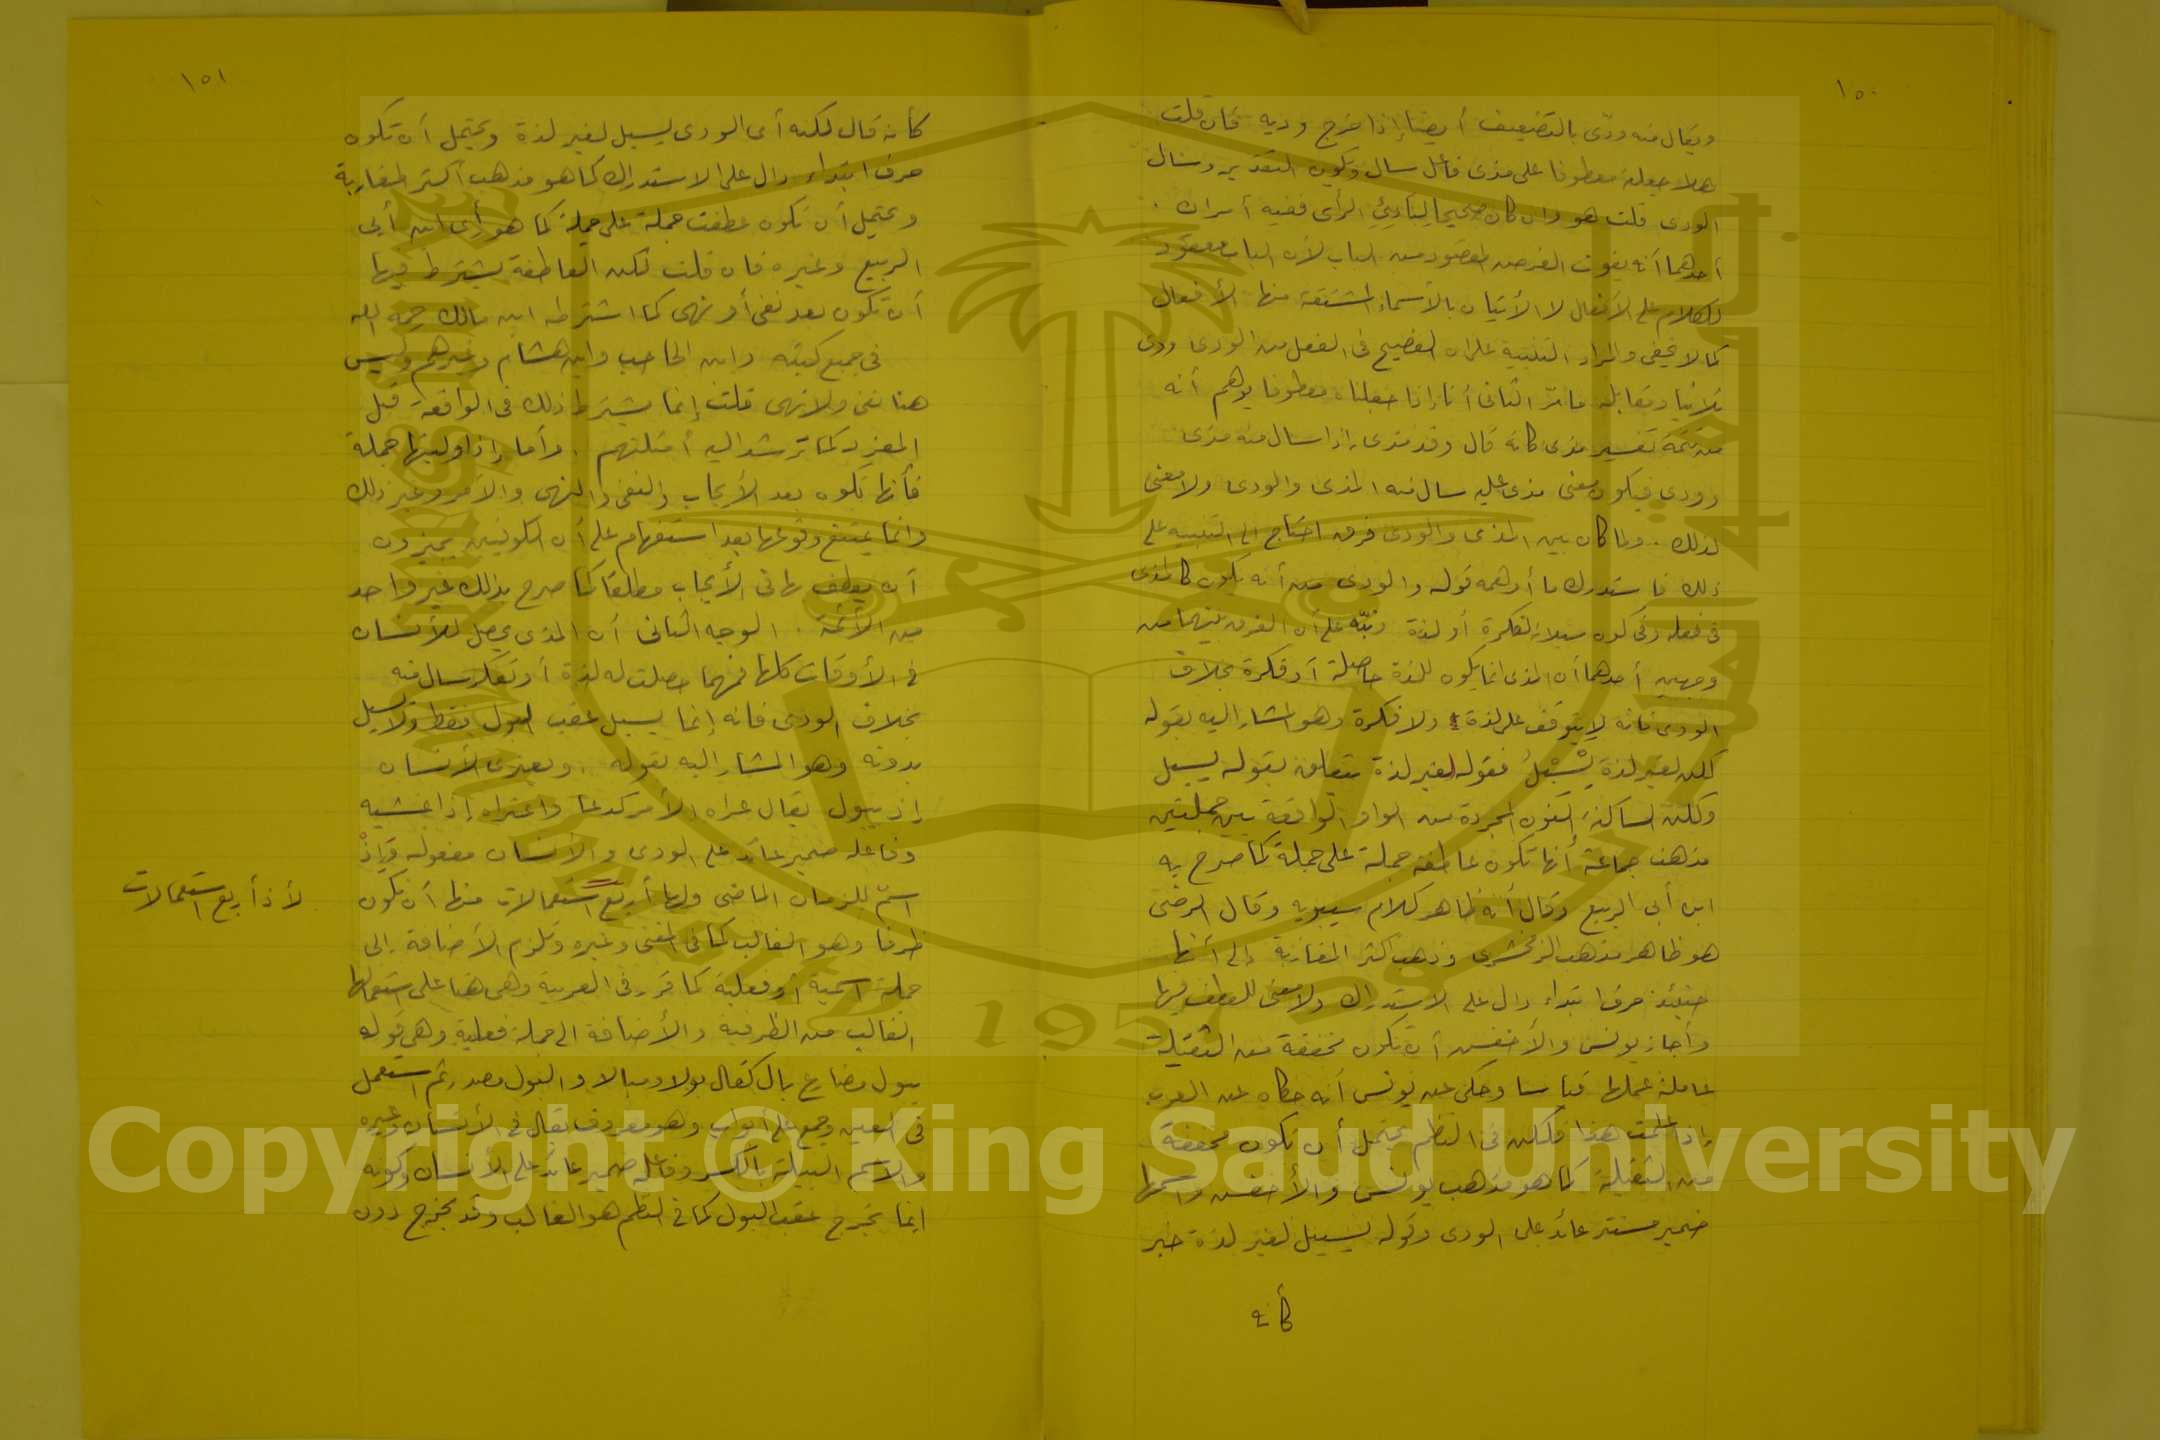 ١٥٠
ويقال منه ودّى بالتضعيف أيضا إذا خرج وديه فان قلت
هلا جعله معطوفا على مذى فاعل سال ويكون التقدير وسال
الودى قلت هو وان كان صحيحا لبادئ الرأى ففيه أمران .
أحدهما أنه يفوت الغرض المقصود من الباب لأن الباب معقود
للكلام على الأفعال لا الأتيان بالأسماء المشتقة منها الأفعال
كما لا يخفى والمراد التنبيه على ان الفصيح فى الفعل من الودى ودى
ثلاثيا ويقابله الثانى أنا إذا جعلناه معطوفا يوهم أنه
من تتمة تفسير مذى كانه قال وقد مذى إذا سال منه مذى
وودى فيكون معنى مذى عليه سال منه المذى والودى ولا معنى
لذلك . ولما كان بين المذى والودى فرق احتاج الى التنبيه على
ذلك فاستدرك ما أوهمه قوله والودى من أنه يكون كالمذى
فى فعله وفى كون سيلانه لفكرة أو لذة ونبّه على أن الفرق بينهما من
وجهين أحدهما أن المذى انما يكون للذة حاصلة أو فكرة بخلاف
الودى فانه لا يتوقف على لذة ولا فكرة وهو المشار اليه بقوله
لكن لغير لذة يسيل فقوله لغير لذة متعلق بقوله يسيل
ولكن الساكنة النون المجردة من الواو الواقعة بين جملتين
مذهب جماعة أنها تكون عاطفة جملة على جملة كما صرح به
ابن أبى الربيع وقال أنه ظاهر كلام سيبويه وقال الرضى
هو ظاهر مذهب الزمخشرى وذهب أكثر المغاربة إلى أنها
حينئذ حرف ابتداء دال على الاستدراك ولا معنى للعطف فيها
وأجاز يونس والأخفش أن تكون مخففة من الثقيلة
عاملة عملها قياسا وحكى عن يونس أنه حكاه عن العرب
إذا علمت هذا فلكن فى النظم يحتمل أن تكون مخففة
من الثقيلة كما هو مذهب يونس والأخفش واسمها
ضمير مستتر عائد على الودى وقوله يسيل لغير لذة خبر
كأنه
١٥١
كأنه قال لكنه أى الودى يسيل لغير لذة ويحتمل أن تكون
حرف ابتداء دال على الاستدراك كما هو مذهب أكثر المغاربة
ويحتمل أن تكون عطفت جملة على جملة كما هو رأى ابن أبى
الربيع وغيره فان قلت لكن العاطفة يشترط فيها
أن تكون بعد نفى أو نهى كما اشترطه ابن مالك رحمه الله
فى جميع كتبه وابن الحاجب وابن هشام وغيرهم وليس
هنا نفى ولا نهى قلت إنما يشترط ذلك فى الواقعة قبل
المفرد كما ترشد اليه أمثلتهم . وأما إذا وليتها جملة
فأنها تكون بعد الأيجاب والنفى والنهى والأمر وغير ذلك
وانما يمتنع وقوعها بعد استفهام على أن الكوفيين يجيزون
أن يعطف بها فى الأيجاب مطلقا كما صرح بذلك غير واحد
من الأئمة . الوجه الثانى أن المذى يحصل للأنسان
فى الأوقات كلها فمهما حصلت له لذة أو تفكر سال منه
بخلاف الودى فانه إنما يسيل عقب البول فقط ولا يسيل
بدونه وهو المشار اليه بقوله . ويعترى الأنسان
إذ يبول يقال عراه الأمر كدعا واعتراه إذا غشيه
وفاعله ضمير عائد على الودى والأنسان مفعوله وإذْ
اسمٌ للزمان الماضى ولها أربع استعمالات منها أن تكون
لأذ أربع استعمالات
ظرفا وهو الغالب كما فى المغنى وغيره وتلزم الأضافة إلى
جملة اسمية أو فعلية كما قرر فى العربية وهى هنا على استعمالها
الغالب من الظرفية والأضافة الى جملة فعلية وهى قوله
يبول مضارع بال كقال بولا ومبالا والبول مصدر ثم استعمل
فى العين وجمع على أبوال وهو معروف يقال فى الأنسان وغيره
والاسم البيلة بالكسر وفاعله ضمير عائد على الأنسان وكونه
انما يخرج عقب البول كما فى النظم هو الغالب وقد يخرج دون
Copyright © King Saud University
1957